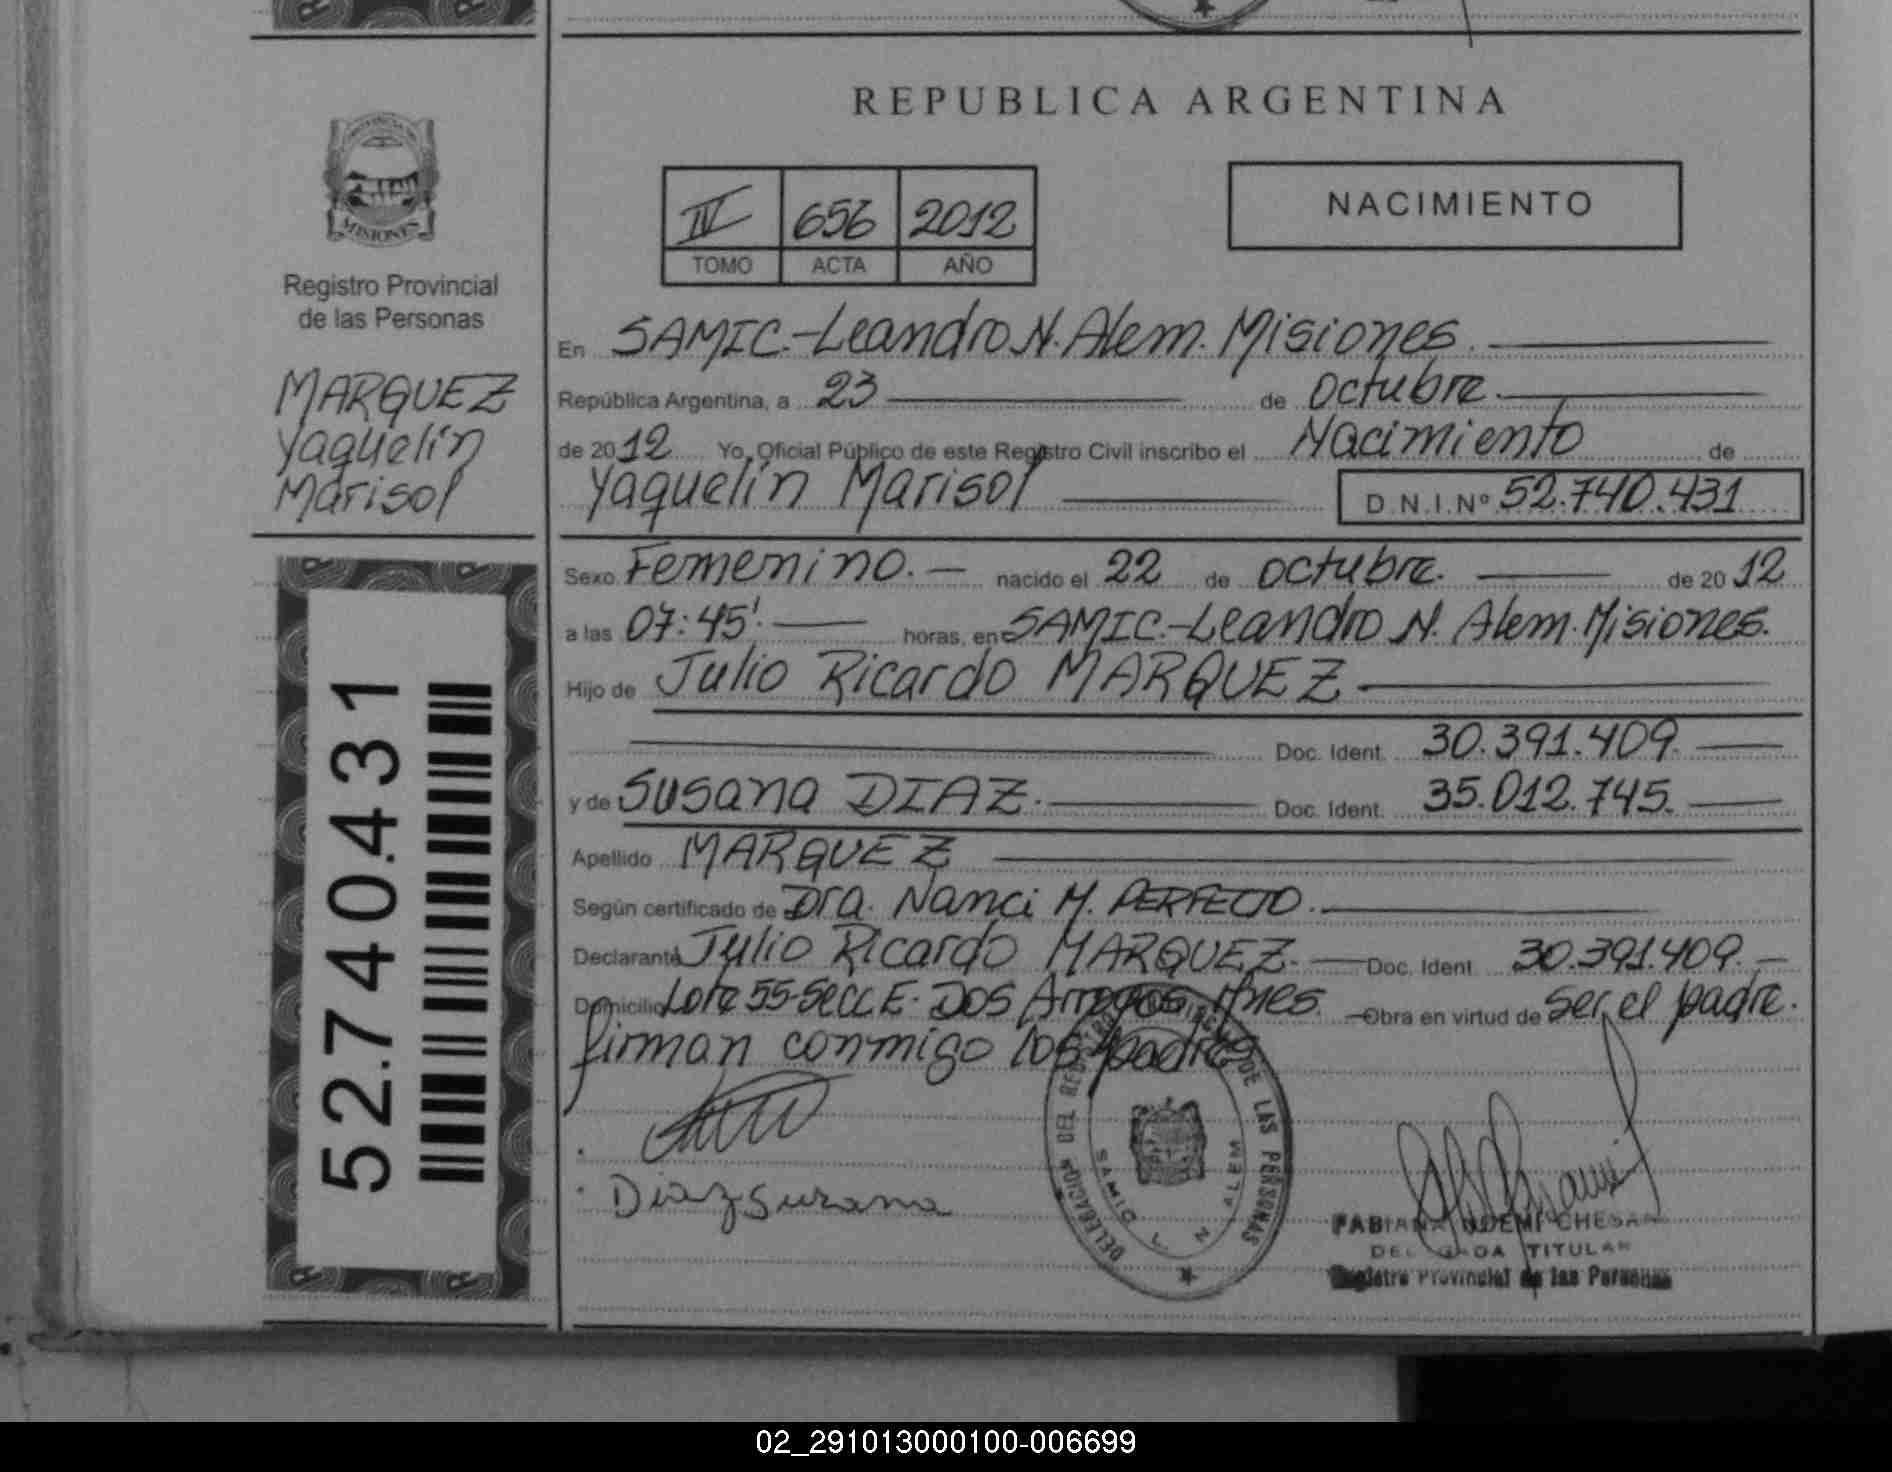 REPUBLICA ARGENTINA
MISIONES
Registro Provincial
de las Personas
MARQUEZ
Yaquelín
Marisol
52.740.431
IV 656 2012
TOMO ACTA AÑO
NACIMIENTO
En SAMIC.-Leandro N. Alem. Misiones.
República Argentina, a 23 de octubre.
de 2012 Yo, Oficial Público de este Registro Civil inscribo el Nacimiento de
Yaquelín Marisol D.N.I.Nº 52.740.431
Sexo Femenino.- nacido el 22 de octubre. de 2012
a las 07:45'. horas, en SAMIC.-Leandro N. Alem. Misiones.
Hijo de Julio Ricardo MARQUEZ
Doc. Ident. 30.391.409.
y de Susana DIAZ. Doc. Ident. 35.012.745.
Apellido MARQUEZ
Según certificado de Dra. Nanci M. PERFECTO.
Declarante Julio Ricardo MARQUEZ.- Doc. Ident. 30.391.409.-
Domicilio Lote 55-Secc E- DOS Arroyos, Mnes. Obra en virtud de Ser el padre.
firman conmigo los padres
Diaz Susana
DELEGACION DEL REGISTRO PROVINCIAL DE LAS PERSONAS
SAMIC L. N. ALEM
FABIANA NOEMI CHESA
DELEGADA TITULAR
Registro Provincial de las Personas
02_291013000100-006699